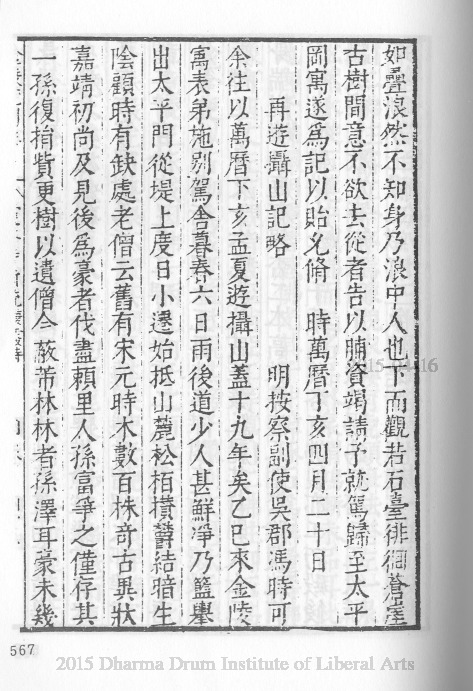 如疊浪然不知身乃浪中人也下而觀若石臺徘徊蒼崖
古樹間意不欲去從者告以脯資竭請予就駕歸至太平
岡寓遂為記以貽允脩 時萬曆丁亥四月二十日
再遊攝山記略 明按察副使吳郡馮時可
余往以萬曆丁亥孟夏遊攝山蓋十九年矣乙巳來金陵
寓表弟施別駕舍暮春六日雨後道少人甚鮮淨乃籃轝
出太平門從堤上度日小遷始抵山麓松柏攢欝結暗生
陰顧時有缺處老僧云舊有宋元時木數百株奇古異狀
嘉靖初尚及見後為豪者伐盡頼里人孫富爭之僅存其
一孫復捐貲更樹以遺僧今蔽芾林林者孫澤耳豪未幾
567
2015 Dharma Drum Institute of Liberal Arts